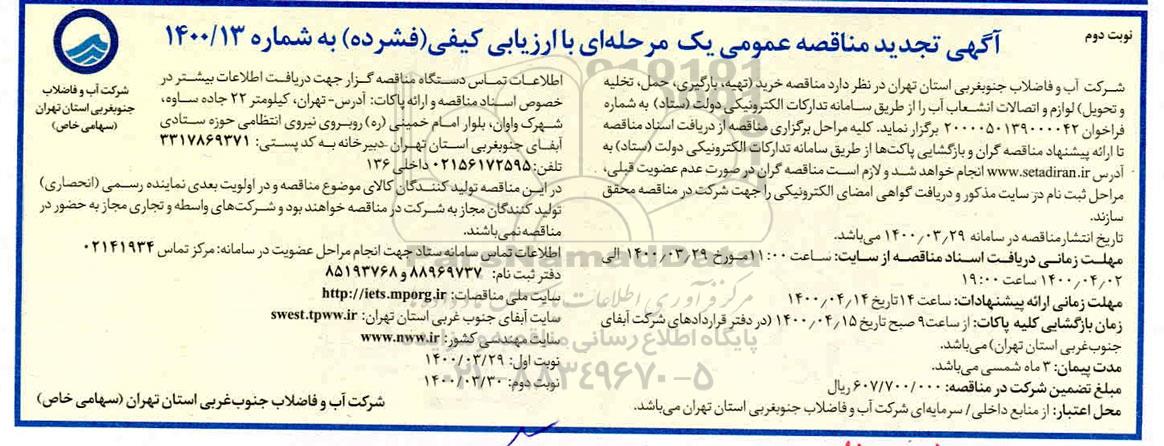 نوبت دوم
آگهی تجدید مناقصه عمومی یک مرحله‌ای با ارزیابی کیفی(فشرده) به شماره ۱۴۰۰/۱۳
شرکت آب و فاضلاب
جنوبغربی استان تهران
(سهامی خاص)
شرکت آب و فاضلاب جنوبغربی استان تهران در نظر دارد مناقصه خرید (تهیه، بارگیری، حمل، تخلیه
و تحویل) لوازم و اتصالات انشعاب آب را از طریق سامانه تدارکات الکترونیکی دولت (ستاد) به شماره
فراخوان ۲۰۰۰۰۵۰۱۳۹۰۰۰۰۴۲ برگزار نماید. کلیه مراحل برگزاری مناقصه از دریافت اسناد مناقصه
تا ارائه پیشنهاد مناقصه گران و بازگشایی پاکت‌ها از طریق سامانه تدارکات الکترونیکی دولت (ستاد) به
آدرس www.setadiran.ir انجام خواهد شد و لازم است مناقصه گران در صورت عدم عضویت قبلی،
مراحل ثبت نام در سایت مذکور و دریافت گواهی امضای الکترونیکی را جهت شرکت در مناقصه محقق
سازند.
تاریخ انتشار مناقصه در سامانه ۱۴۰۰٫۰۳٫۲۹ می‌باشد.
مهلت زمانی دریافت اسناد مناقصه از سایت: ساعت ۱۱:۰۰ مورخ ۱۴۰۰٫۰۳٫۲۹ الی
۱۴۰۰٫۰۴٫۰۲ ساعت ۱۹:۰۰
مهلت زمانی ارائه پیشنهادات: ساعت ۱۴ تاریخ ۱۴۰۰٫۰۴٫۱۴
زمان بازگشایی کلیه پاکات: از ساعت ۹ صبح تاریخ ۱۴۰۰٫۰۴٫۱۵ (در دفتر قراردادهای شرکت آبفای
جنوب‌غربی استان تهران) می‌باشد.
مدت پیمان: ۳ ماه شمسی می‌باشد.
مبلغ تضمین شرکت در مناقصه: ۶۰۷/۷۰۰/۰۰۰ ریال
محل اعتبار: از منابع داخلی/ سرمایه‌ای شرکت آب و فاضلاب جنوبغربی استان تهران می‌باشد.
اطلاعات تماس دستگاه مناقصه گزار جهت دریافت اطلاعات بیشتر در
خصوص اسناد مناقصه و ارائه پاکات: آدرس- تهران، کیلومتر ۲۲ جاده ساوه،
شهرک واوان، بلوار امام خمینی (ره) روبروی نیروی انتظامی حوزه ستادی
آبفای جنوبغربی استان تهران -دبیرخانه به کد پستی: ۳۳۱۷۸۶۹۳۷۱
تلفن: ۰۲۱۵۶۱۷۲۵۹۵ داخلی ۱۳۶
در این مناقصه تولید کنندگان کالای موضوع مناقصه و در اولویت بعدی نماینده رسمی (انحصاری)
تولید کنندگان مجاز به شرکت در مناقصه خواهند بود و شرکت‌های واسطه و تجاری مجاز به حضور در
مناقصه نمی‌باشند.
اطلاعات تماس سامانه ستاد جهت انجام مراحل عضویت در سامانه: مرکز تماس ۰۲۱۴۱۹۳۴
دفتر ثبت نام: ۸۸۹۶۹۷۳۷ و ۸۵۱۹۳۷۶۸
سایت ملی مناقصات: http://iets.mporg.ir
سایت آبفای جنوب غربی استان تهران: swest.tpww.ir
سایت مهندسی کشور: www.nww.ir
نوبت اول: ۱۴۰۰/۰۳/۲۹
نوبت دوم: ۱۴۰۰/۰۳/۳۰
شرکت آب و فاضلاب جنوب‌غربی استان تهران (سهامی خاص)
ParsNamadData
پایگاه اطلاع رسانی مناقصه و مزایده
۰۲۱-۸۸۳۴۹۶۷۰-۵